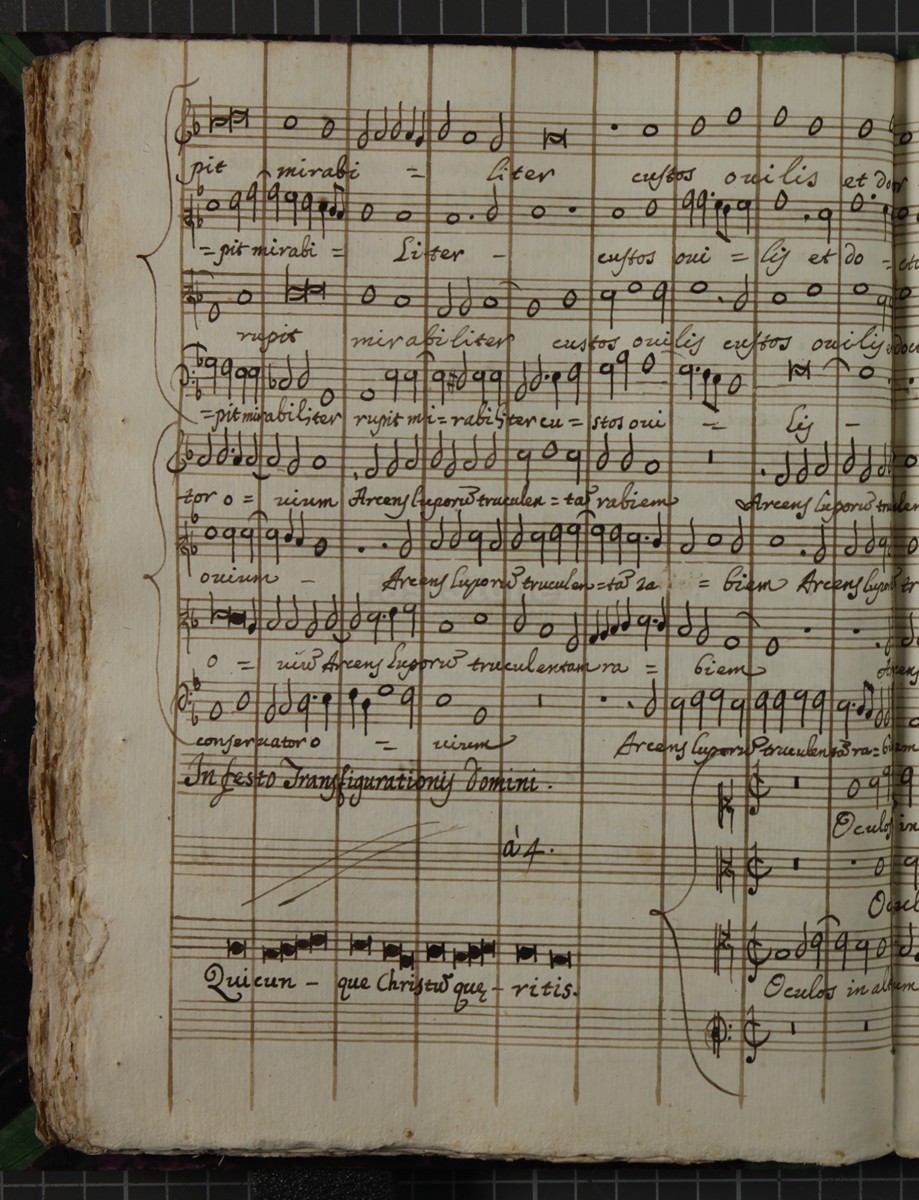 pit mirabi = liter custos ouilis et doc
= pit mirabi = Liter - custos oui = lis et do = cto
rupit mirabiliter custos ouilis custos ouilis
= pit mirabiliter rupit mi = rabiliter cu = stos oui = lis -
tor o = uium Arcens luporũ truculen = tã rabiem Arcens luporũ trulen
ouium - Arcens luporũ truculen = tã ra = biem Arcens lupo tr
o = uiũ Arcens luporũ truculentam ra = biem Arcens
conseruator o = uium Arcens luporũ truculentã ra = biem
In festo Transfigurationis Domini.
à 4.
Oculos in
Ocul
Quicun - que Christũ quę - ritis.
Oculos in altum